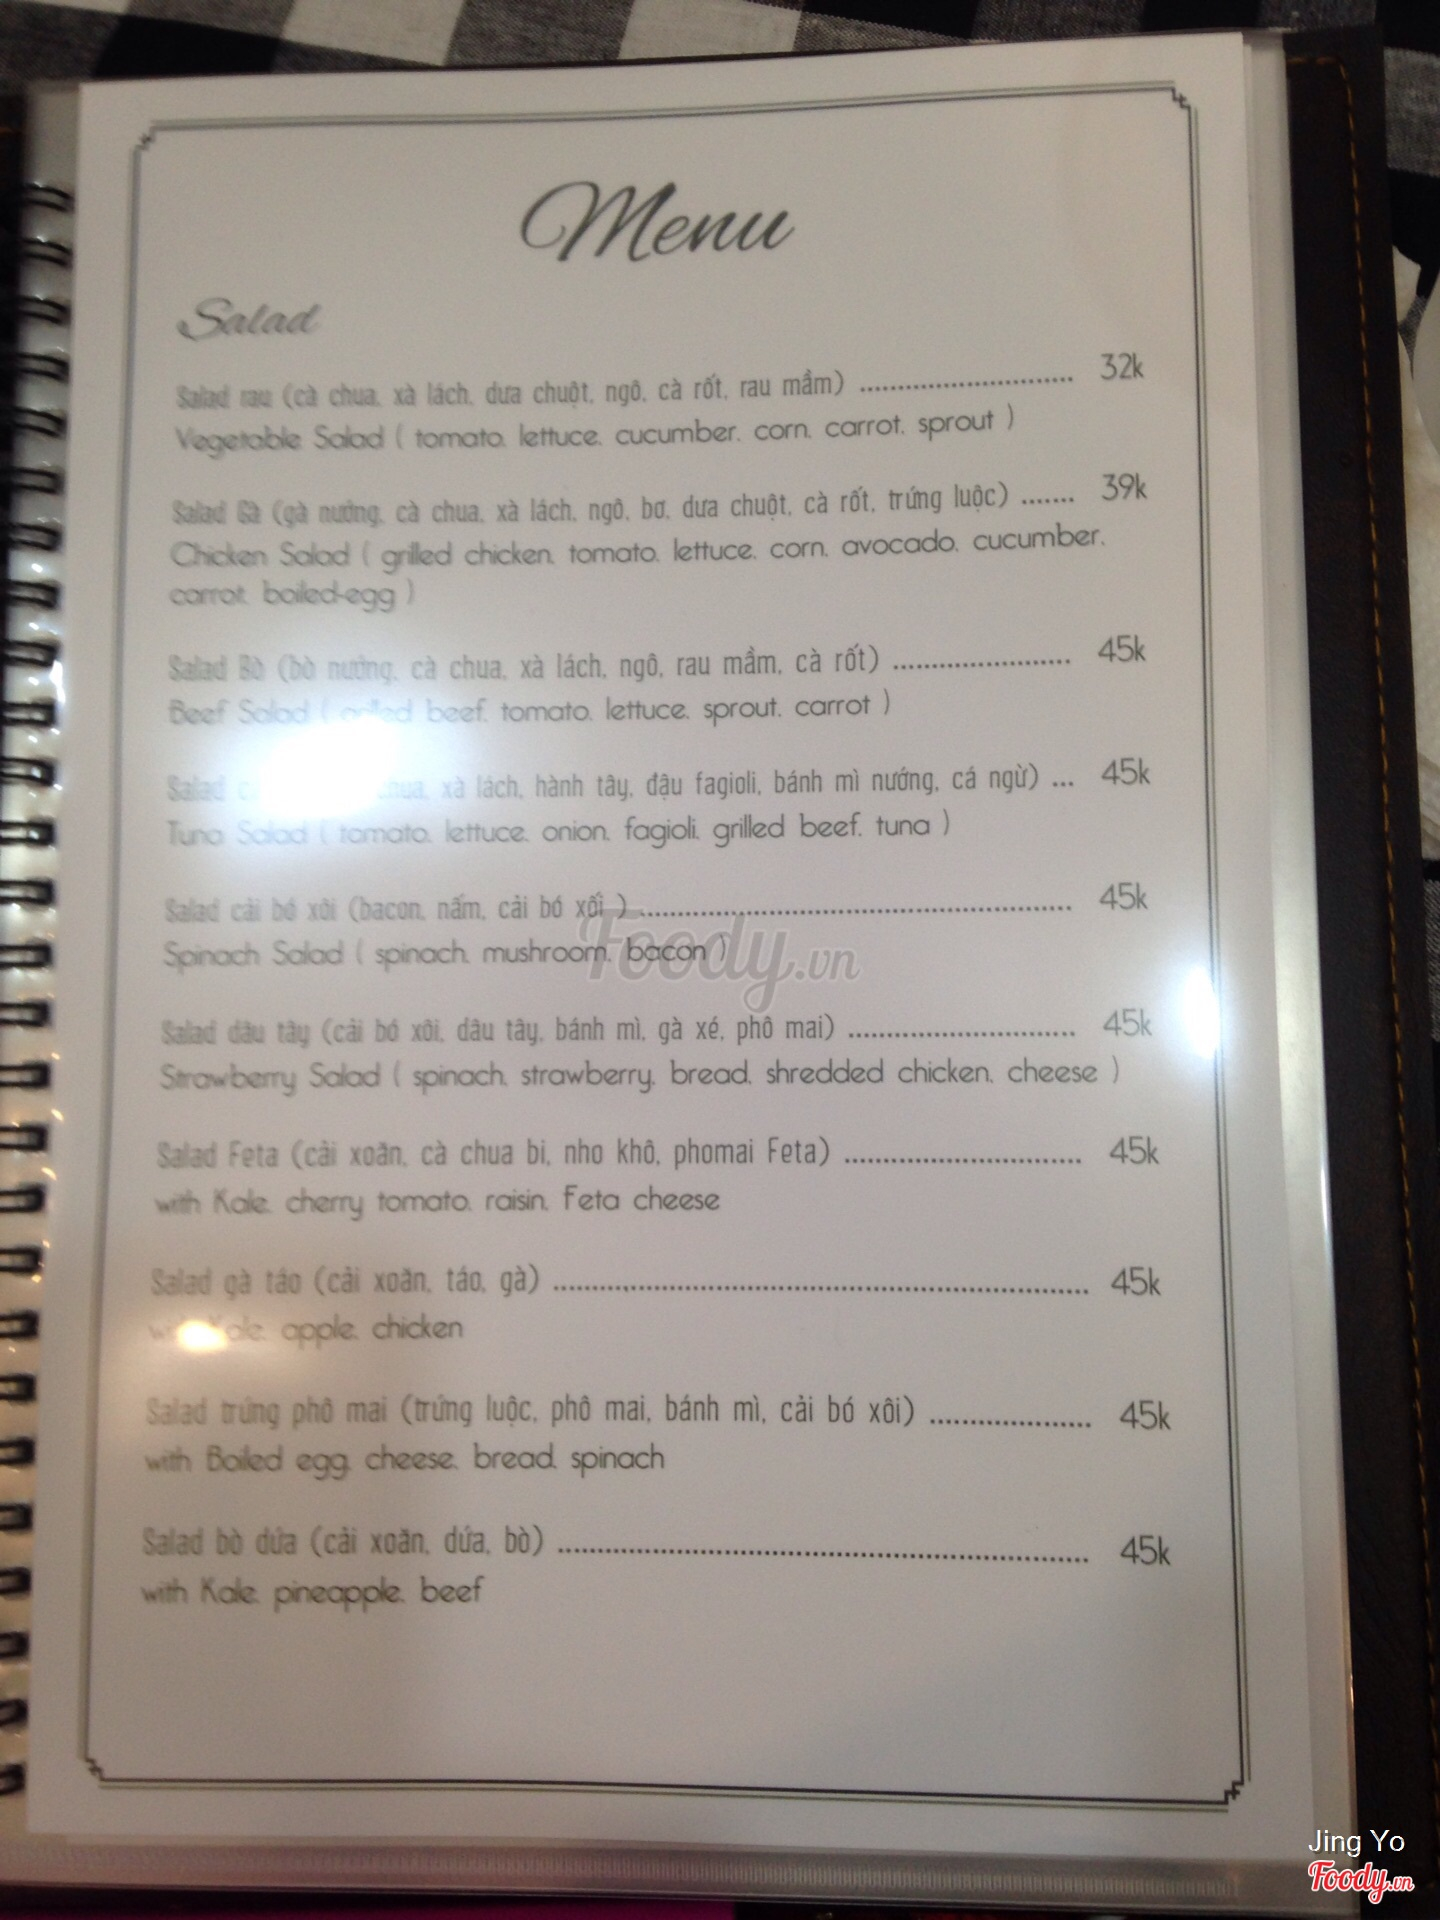 Menu
Salad
Salad rau (cà chua, xà lách, dưa chuột, ngô, cà rốt, rau mầm) .............................. 32k
Vegetable Salad ( tomato, lettuce, cucumber, corn, carrot, sprout )
Salad Gà (gà nướng, cà chua, xà lách, ngô, bơ, dưa chuột, cà rốt, trứng luộc) ....... 39k
Chicken Salad ( grilled chicken, tomato, lettuce, corn, avocado, cucumber,
carrot, boiled-egg )
Salad Bò (bò nướng, cà chua, xà lách, ngô, rau mầm, cà rốt) ......................... 45k
Beef Salad ( grilled beef, tomato, lettuce, sprout, carrot )
Salad chua, xà lách, hành tây, đậu fagioli, bánh mì nướng, cá ngừ) ... 45k
Tuna Salad ( tomato, lettuce, onion, fagioli, grilled beef, tuna )
Salad cải bó xôi (bacon, nấm, cải bó xôi ) ............................................................ 45k
Spinach Salad ( spinach, mushroom, bacon )
Foody.vn
Salad dâu tây (cải bó xôi, dâu tây, bánh mì, gà xé, phô mai) ................................ 45k
Strawberry Salad ( spinach, strawberry, bread, shredded chicken, cheese )
Salad Feta (cải xoăn, cà chua bi, nho khô, phomai Feta) ................................. 45k
with Kale, cherry tomato, raisin, Feta cheese
Salad gà táo (cải xoăn, táo, gà) .......................................................................... 45k
with Kale, apple, chicken
Salad trứng phô mai (trứng luộc, phô mai, bánh mì, cải bó xôi) ...................... 45k
with Boiled egg, cheese, bread, spinach
Salad bò dứa (cải xoăn, dứa, bò) .......................................................................... 45k
with Kale, pineapple, beef
Jing Yo
Foody.vn